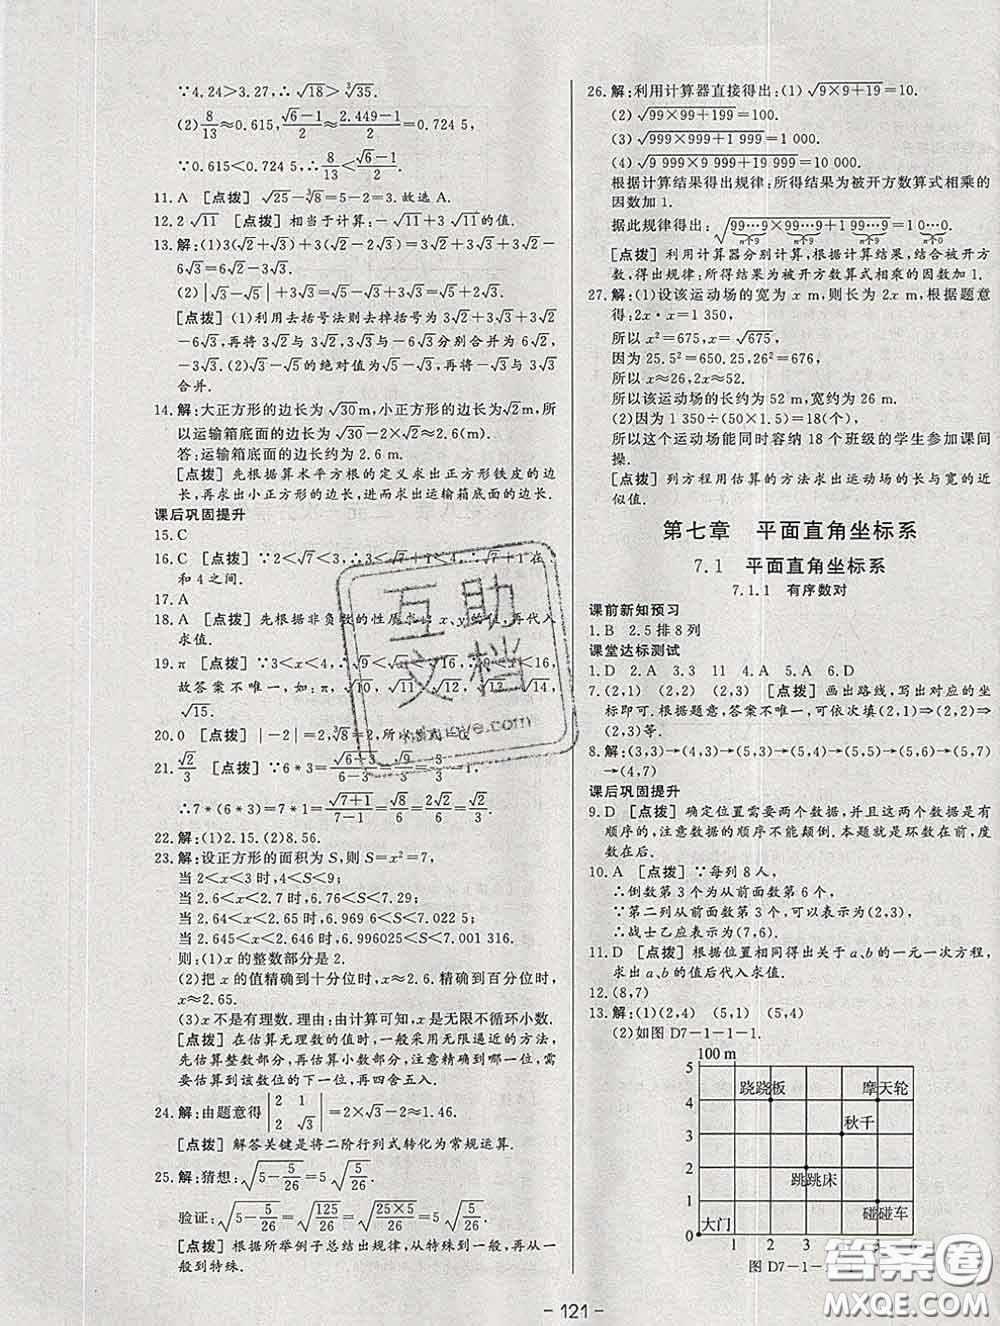 ∵4.24>3.27,∴√18>∛35.
(2)8/13≈0.615,(√6-1)/2≈(2.449-1)/2=0.724 5,
∵0.615<0.724 5,∴8/13<(√6-1)/2.
11.A [点拨]√25-∛8=5-2=3.故选 A.
12.2√11 [点拨]相当于计算:-√11+3√11的值.
13.解:(1)3(√2+√3)+3(√2-2√3)=3√2+3√3+3√2-
6√3=6√2-3√3.
(2)|√3-√5|+3√3=√5-√3+3√3=√5+2√3.
[点拨](1)利用去括号法则去掉括号为3√2+3√3+3√2
-6√3,再将3√2与3√2,3√3与-6√3分别合并为6√2,
-3√3.(2)√3-√5的绝对值为√5-√3,再将-√3与3√3
合并.
14.解:大正方形的边长为√30 m,小正方形的边长为√2 m,所
以运输箱底面的边长为√30-2×√2≈2.6(m).
答:运输箱底面的边长约为 2.6 m.
[点拨]先根据算术平方根的定义求出正方形铁皮的边
长,再求出小正方形的边长,进而求出运输箱底面的边长.
课后巩固提升
15.C
16.C [点拨]∵2<√7<3,∴3<√7+1<4,∴√7+1在
和 4 之间.
17.A
18.A [点拨]先根据非负数的性质求 x、y的值,再代入
求值.
19.π [点拨]∵3<x<4,∴√9<x<√16,∵9<10<16,
故答案不唯一,如:π,√10,√11,√12,√13,√14,
√15.
20.0 [点拨]|-2|=2,∛8=2,所
21.√2/3 [点拨]∵6*3=√(6+3)/(6-3)=√9/3=3/3=1,
∴7*(6*3)=7*1=√(7+1)/(7-1)=√8/6=2√2/6=√2/3.
22.解:(1)2.15.(2)8.56.
23.解:设正方形的面积为 S,则 S=x²=7,
当 2<x<3 时,4<S<9;
当 2.6<x<2.7 时,6.76<S<7.29;
当 2.64<x<2.65 时,6.969 6<S<7.022 5;
当 2.645<x<2.646 时,6.996025<S<7.001 316.
则:(1)x 的整数部分是 2.
(2)把 x 的值精确到十分位时,x≈2.6;精确到百分位时,
x≈2.65.
(3)x 不是有理数.理由:由计算可知,x 是无限不循环小数.
[点拨]在估算无理数的值时,一般采用无限逼近的方法,
先估算整数部分,再估算小数部分,注意精确到哪一位,需
要估算到该数位的下一位,再四舍五入.
24.解:由题意得|2 1; 2 √3|=2×√3-2≈1.46.
[点拨]解答关键是将二阶行列式转化为常规运算.
25.解:猜想:√(5-5/26)=5√(5/26).
验证:√(5-5/26)=√(125/26)=√(25×5/26)=5√(5/26).
[点拨]根据所举例子总结出规律,再从特殊到一般,再从
一般到特殊.
26.解:利用计算器直接得出:(1)√(9×9+19)=10.
(2)√(99×99+199)=100.
(3)√(999×999+1 999)=1 000.
(4)√(9 999×9 999+19 999)=10 000.
根据计算结果得出规律:所得结果为被开方数算式相乘的
因数加 1.
据此规律得出:√(99…9×99…9+199…9)=10…0.
n个9 n个9 n个9 n个0
[点拨]利用计算器分别计算,根据计算结果,结合被开方
数,得出规律:所得结果为被开方数算式相乘的因数加 1.
27.解:(1)设该运动场的宽为 x m,则长为 2x m,根据题意
得:2x·x=1 350,
所以 x²=675,x=√675,
因为 25.5²=650.25,26²=676,
所以 x≈26,2x≈52.
所以该运动场的长约为 52 m,宽约为 26 m.
(2)因为 1 350÷(50×1.5)=18(个)
所以这个运动场能同时容纳 18 个班级的学生参加课间
操.
[点拨]列方程用估算的方法求出运动场的长与宽的近
似值.
第七章 平面直角坐标系
7.1 平面直角坐标系
7.1.1 有序数对
课前新知预习
1.B 2.5 排 8 列
课堂达标测试
1.D 2.A 3.3 11 4.A 5.A 6.D
7.(2,1) (2,2) (2,3) [点拨]画出路线,写出对应的坐
标即可.根据题意,答案不唯一,可依次填(2,1)→(2,2)→
(2,3)等.
8.解:(3,3)→(4,3)→(5,3)→(5,5)→(5,6)→(5,7)
→(4,7)
课后巩固提升
9.D [点拨]确定位置需要两个数据,并且这两个数据是有
顺序的,注意数据的顺序不能颠倒.本题就是环数在前,度
数在后.
10.A [点拨]∵每列 8 人,
∴倒数第 3 个为从前面数第 6 个,
∵第二列从前面数第 3 个,可以表示为(2,3),
∴战士乙应表示为(7,6).
11.D [点拨]根据位置相同得出关于 a、b 的一元一次方程,
求出 a、b 的值后代入求值.
12.(8,7)
13.解:(1)(2,4) (5,1) (5,4)
(2)如图 D7-1-1-1.
100 m
5
4
3
2
1
0
跷跷板
摩天轮
秋千
跳跳床
碰碰车
大门
1 2 3 4 5
图 D7-1-1-1
- 121 -
互助
文档
答案圈
MXQE.COM